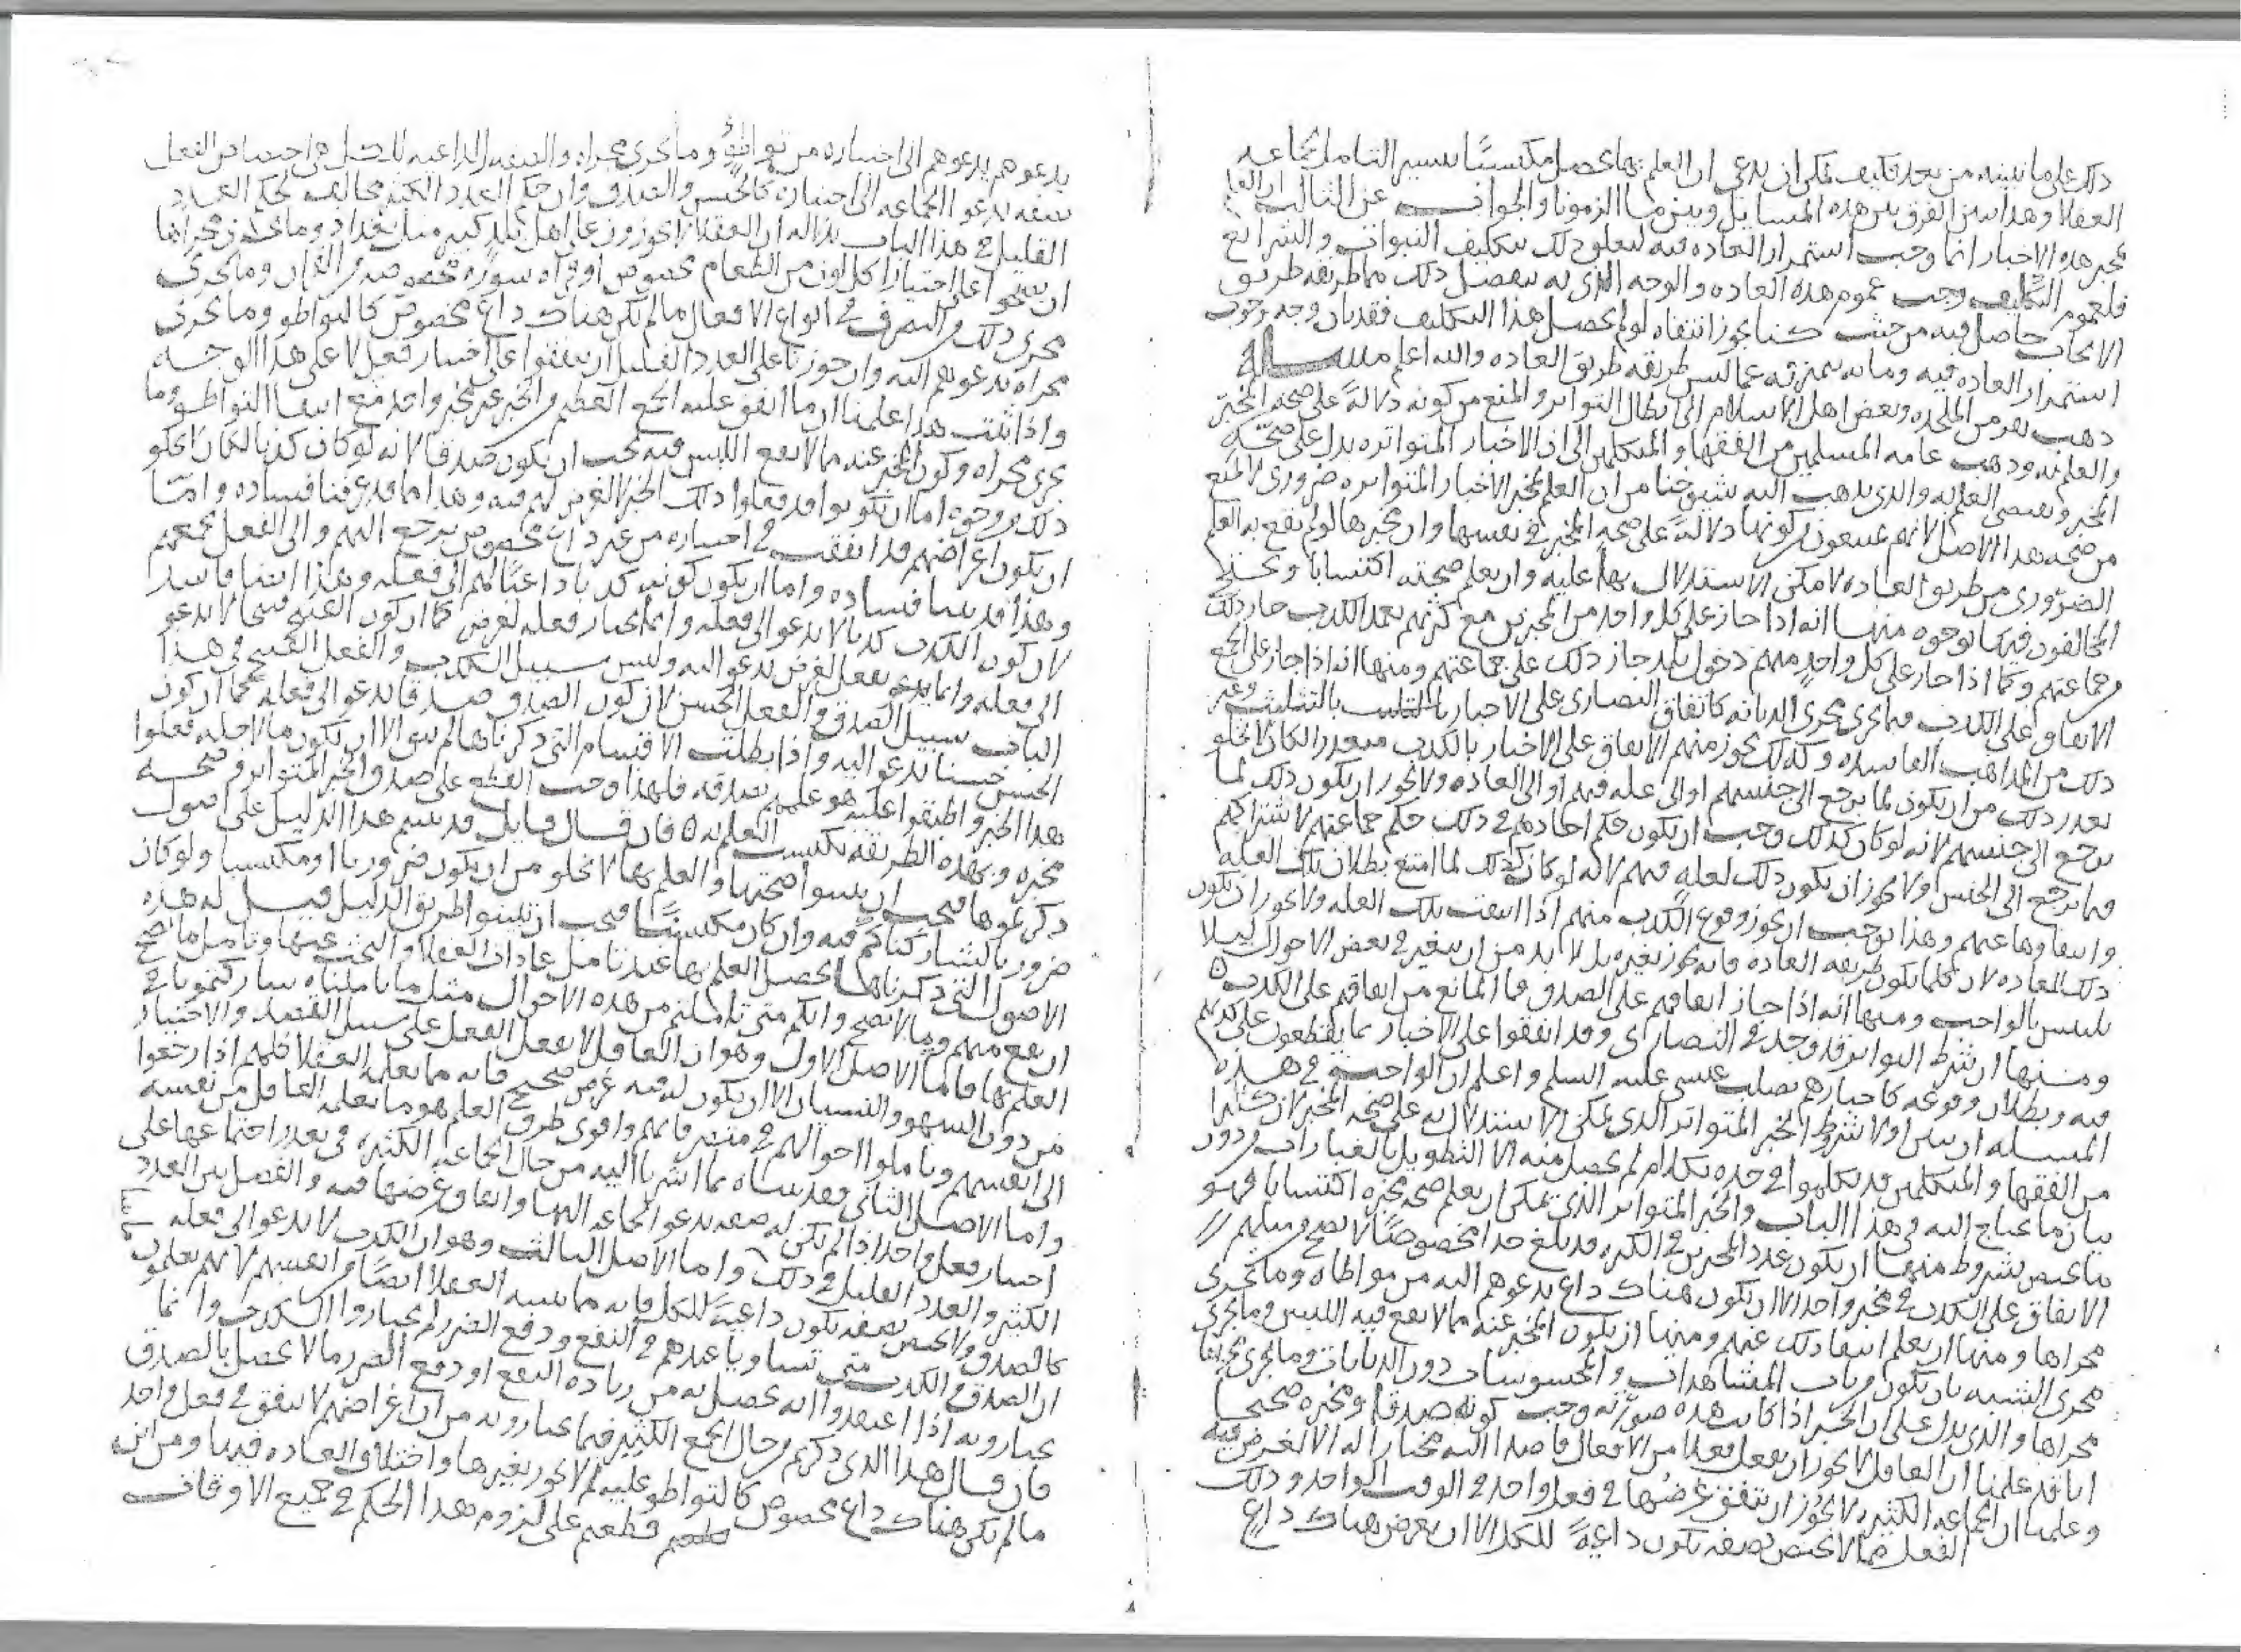 ذلك على ما نبينه من بعد فكيف يمكن ان يدعى ان العلم بها يحصل مكتسبًا بيسير التأمل لجماعه
العقلا وهذا يبين الفرق بين هذه المسايل وبين ما الزمونا والجواب عن الثالث ان العلم
بمخبر هذه الاخبار انما وجب استمرار العاده فيه لتعلق ذلك بتكليف النبوات والشرايع
فلعموم التكليف وجب عموم هذه العاده والوجه الذي به ينفصل ذلك مما طريقه طريق
الايجاب حاصل فيه من حيث كنا نجوز انتفاه لو لم يحصل هذا التكليف فقد بان وجه وجوب
استمرار العاده فيه وما به يميز ته عما ليس طريقه طريق العاده والله اعلم مسأله
ذهب نفر من الملحده وبعض اهل الاسلام الى ابطال التواتر والمنع من كونه دلالةً على صحه المخبر
والعلم به وذهب عامه المسلمين من الفقها والمتكلمين الى ان الاخبار المتواتره يدل على صحّة
المخبر ويقتضى العلم به والذي يذهب اليه شيوخنا من ان العلم بمخبر الاخبار المتواتره ضروري لا يمنع
من صحه هذا الاصل لانهم لا يمنعون من كونها دلالةً على صحه المخبر في نفسها وان مخبرها لو لم يقع به العلم
الضرّوري من طريق العاده لامكن الاستدلال بها عليه وان يعلم صحته اكتسابا ويحتج
المخالفون فيها بوجوه منها انه اذا جاز على كل واحد من المخبرين مع كثرتهم تعمد الكذب جاز ذلك
في جماعتهم وكما اذا جاز على كل واحدٍ منهم دخول بلد جاز ذلك على جماعتهم ومنها انه اذا جاز على الجمع
الاتفاق على الكذب فيما يجري مجرى الديانه كاتفاق النصارى على الاخبار بالتثليث وغير
ذلك من المذاهب الفاسده وكذلك يجوز منهم الاتفاق على الاخبار بالكذب متعذرا لكان لا يخلو
تعذر ذلك من ان يكون لما يرجع الى جنسهم او الى عله فيهم او الى العاده ولا يجوز ان يكون ذلك لما
يرجع الى جنسهم لانه لو كان كذلك وجب ان يكون حكم احادهم في ذلك حكم جماعتهم لاشتراكهم
فيما يرجع الى الجنس ولا يجوز ان يكون ذلك لعلهٍ فيهم لانه لو كان كذلك لما امتنع بطلان تلك العله
وانتفاوها عنهم وهذا يوجب ان يجوز وقوع الكذب منهم اذا انتفت تلك العله ولا يجوز ان يكون
ذلك للعاده لان كلما يكون طريقه العاده فانه يجوز تغيره بل لا بد من ان يتغير في بعض الاحوال ليلا
يلتبس بالواجب ومنها انه اذا جاز اتفاقهم على الصدق فما المانع من اتفاقهم على الكذب
ومنها ان شرط التواتر قد وجد في النصارى وقد اتفقوا على الاخبار بما يقطعون على كذبهم
فيه وبطلان وقوعه كاخبارهم بصلب عيسى عليه السلم واعلم ان الواجب في هذه
المسله ان نبين اولا شروط الخبر المتواتر الذي يمكن الاستدلال به على صحه المخبر لان كثيرا
من الفقها والمتكلمين قد تكلموا في حده بكلام لم يحصل منه الا التطويل بالعبارات دون
بيان ما يحتاج اليه في هذا الباب والخبر المتواتر الذي يمكن ان يعلم صحه مخبره اكتسابا فهو
ما يختص بشروط منها ان يكون عدد المخبرين في الكثره قد بلغ حدا مخصوصًا لا يصح من مثلهم
الاتفاق على الكذب في مخبر واحد الا ان يكون هناك داع يدعوهم اليه من مواطاه وما يجري
مجراها ومنها ان يعلم انتفا ذلك عنهم ومنها ان يكون المخبر عنه مما لا يقع فيه اللبس وما يجري
مجرى الشبه بان يكون من باب المشاهدات والمحسوسات دون الديانات وما يجري مجراها
مجراها والذي يدل على ان الخبر اذا كانت هذه صورّته وجب كونه صدقا ومخبره صحيحا
انا قد علمنا ان العاقل لا يجوز ان يفعل فعلا من الافعال قاصدا اليه مختارا له الا لغرض فيه
وعلمنا ان الجماعه الكثيره لا يجوز ان يتفق غرضها في فعل واحد في الوقت الواحد وذلك
الفعل مما لا يختص بصفه تكون داعيةً للكل الا ان يعرض هناك داعٍ
يدعوهم يدعوهم الى اختياره من تواطؤ وما يجري مجراه والصفه الداعيه للكل هي اختصاص الفعل
بصفه يدعو الجماعه الى اختياره كالحسن والصدق وان حكم العدد الكثير مخالف لحكم العدد
القليل في هذا الباب يدل له ان العقلا لا يجوزون على اهل بلد كبير مثل بغداد وما يجري مجراها
ان يتفقوا على اختيار اكل لون من الطعام مخصوص او قراه سورةً مخصوصه من القران وما يجري
مجرى ذلك من التصرف في انواع الافعال ما لم يكن هناك داعٍ مخصوص كالتواطو وما يجري
مجراه يدعوهم اليه وان جوزنا على العدد القليل ان يتفقوا على اختيار فعل لا على هذا الوجه
واذا ثبت هذا علمنا ان ما اتفق عليه الجمع العظيم من الخبر عن مخبر واحد مع انتفا التواطو وما
يجري مجراه وكون المخبر عنه مما لا يقع اللبس فيه يجب ان يكون صدقا لانه لو كان كذبا لكان لا يخلو
ذلك من وجوه اما ان يكونوا قد فعلوا ذلك الخبر لا لغرض لهم فيه وهذا مما قد عرفنا فساده واما
ان يكون اغراضهم قد اتفقت في اختياره من غير داعٍ مخصوص يرجع اليهم والى الفعل يجمعهم
وهذا قد بينا فساده واما ان يكون كونه كذبا داعيًا لهم الى فعله وهذا ايضا فاسد
لان كون الكذب كذبا لا يدعو الى فعله وانما يختار فعله لغرض كما ان كون القبيح قبيحا لا يدعو
الى فعله وانما يفعل لغرض يدعو اليه وليس سبيل الكذب والفعل القبيح في هذا
الباب سبيل الصدق والفعل الحسن لان كون الصدق صدقا يدعو الى فعله كما ان كون
الحسن حسنا يدعو اليه واذا بطلت الاقسام التي ذكرناها لم يبق الا ان يكون ما لاجله فعلوا
هذا الخبر واطبقوا عليه هو علمهم بصدقه فلهذا وجب القطع على صدق الخبر المتواتر وصحه
مخبره وبهذه الطريقه نكتسب العلم به فان قال قايل قد بنيتم هذا الدليل على اصول
ذكرتموها فيجب ان تبينوا صحتها والعلم بها لا يخلو من ان يكون ضروريا او مكتسبا ولو كان
ضروريا لشاركناكم فيه وان كان مكتسبًا فيجب ان تبينوا طريق الدليل قيل له هذه
الاصول التي ذكرناها يحصل العلم بها عند تامل عادات العقلا والبحث عنها وتامل ما يصح
ان يقع منهم وما لا يصح وانكم متى تاملتم من هذه الاحوال مثل ما تاملناه شاركتمونا في
العلم بها فاما الاصل الاول وهو ان العاقل لا يفعل الفعل على سبيل القصد والاختيار
من دون السهو والنسيان الا ان يكون له فيه غرض صحيح فانه مما يعلمه العقلا كلهم اذا رجعوا
الى انفسهم وتاملوا احوالهم في متصرفاتهم واقوى طرق العلم هو ما يعلمه العاقل من نفسه
واما الاصل الثاني فقد بيناه بما اشرنا اليه من حال الجماعه الكثيره في تعذر اجتماعها على
اختيار فعل واحد اذا لم تكن له صفه يدعو الجماعه اليها واتفاق غرضها فيه والفصل بين العدد
الكثير والعدد القليل في ذلك واما الاصل الثالث وهو ان الكذب لا يدعو الى فعله
كالصدق ولا يختص بصفه تكون داعيةً للكل فانه مما يتبينه العقلا ايضًا من انفسهم لانهم يعلمون
ان الصدق والكذب متى تساويا عندهم في النفع ودفع الضرر لم يختاروا الكذب وانما
يختارونه اذا اعتقدوا انه يحصل به من زياده النفع او دفع الضرر ما لا يحصل بالصدق
فان قال هذا الذي ذكرتم من حال الجمع الكثير فيما يختارونه من ان اغراضهم لا تتفق في فعل واحد
ما لم يكن هناك داع مخصوص كالتواطو عليه لم لا يجوز تغيرها واختلاف العاده فيها ومن اين
قطعتم على لزوم هذا الحكم في جميع الاوقات